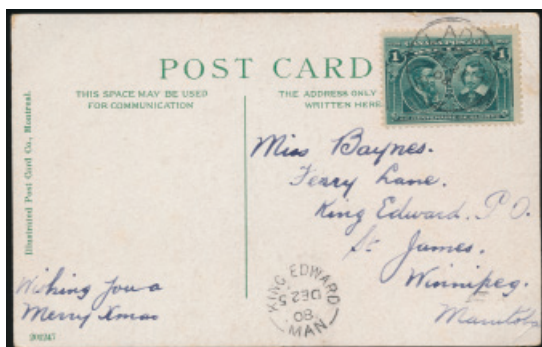 POST CARD
THIS SPACE MAY BE USED
FOR COMMUNICATION
THE ADDRESS ONLY
WRITTEN HERE
1 1
Illustrated Post Card Co., Montreal.
Miss Baynes.
Ferry Lane.
King Edward. P.O.
St James.
Winnipeg.
Manitoba
Wishing you a
Merry Xmas
KING EDWARD
DE 25
08
MAN
202347